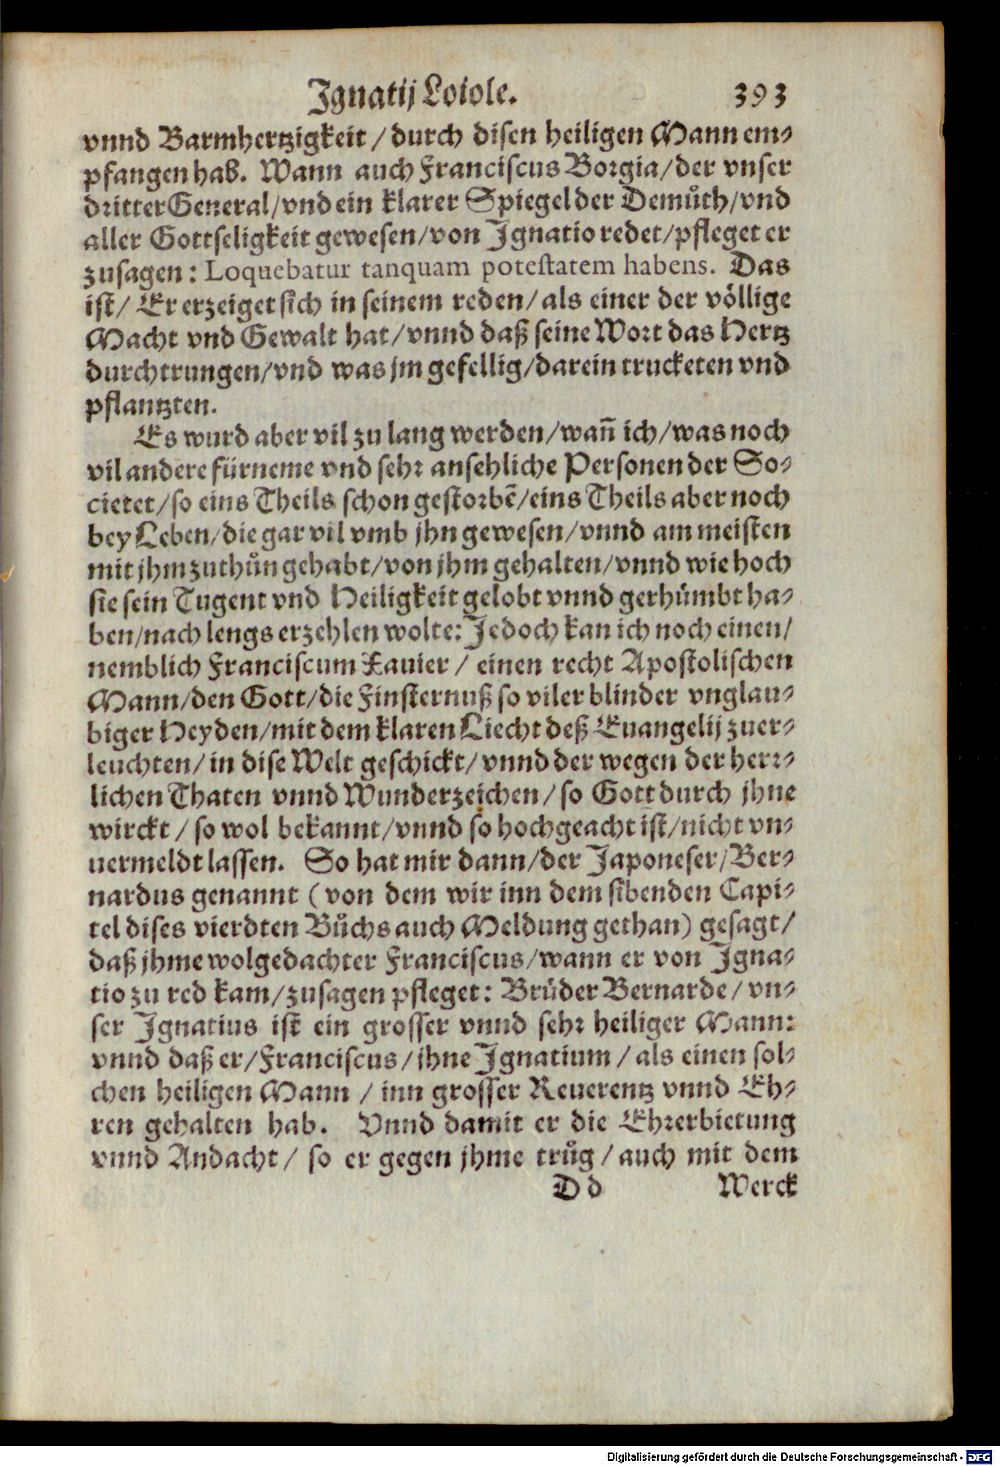 Ignatij Loiole. 393
vnnd Barmhertzigkeit/durch disen heiligen Mann em-
pfangen hab. Wann auch Franciscus Borgia/der vnser
dritter General/vnd ein klarer Spiegel der Demuͦth/vnd
aller Gottseligkeit gewesen/von Ignatio redet/pfleget er
zusagen: Loquebatur tanquam potestatem habens. Das
ist/ Er erzeiget sich in seinem reden/als einer der völlige
Macht vnd Gewalt hat/vnnd daß seine Wort das Hertz
durchtrungen/vnd was jm gefellig/darein trucketen vnd
pflantzten.
Es wurd aber vil zu lang werden/wañ ich/was noch
vil andere fürneme vnd sehr ansehliche Personen der So-
cietet/so eins Theils schon gestorbẽ/eins Theils aber noch
bey Leben/die gar vil vmb jhn gewesen/vnnd am meisten
mit jhm zuthuͦn gehabt/von jhm gehalten/vnnd wie hoch
sie sein Tugent vnd Heiligkeit gelobt vnnd gerhümbt ha-
ben/nach lengs erzehlen wolte: Jedoch kan ich noch einen/
nemblich Franciscum Xauier/ einen recht Apostolischen
Mann/den Gott/die Finsternuß so viler blinder vnglau-
biger Heyden/mit dem klaren Liecht deß Euangelij zuer-
leuchten/in dise Welt geschickt/vnnd der wegen der herr-
lichen Thaten vnnd Wunderzeichen/so Gott durch jhne
wirckt/so wol bekannt/vnnd so hochgeacht ist/nicht vn-
uermeldt lassen. So hat mir dann/der Japoneser/Ber-
nardus genannt (von dem wir inn dem sibenden Capi-
tel dises vierdten Buͦchs auch Meldung gethan) gesagt/
daß jhme wolgedachter Franciscus/wann er von Igna-
tio zu red kam/zusagen pfleget: Brüder Bernarde/vn-
ser Ignatius ist ein grosser vnnd sehr heiliger Mann:
vnnd daß er/Franciscus/jhne Ignatium/als einen sol-
chen heiligen Mann/inn grosser Reuerentz vnnd Eh-
ren gehalten hab. Vnnd damit er die Ehrerbietung
vnnd Andacht/ so er gegen jhme truͦg/auch mit dem
Dd Werck
Digitalisierung gefördert durch die Deutsche Forschungsgemeinschaft - DFG